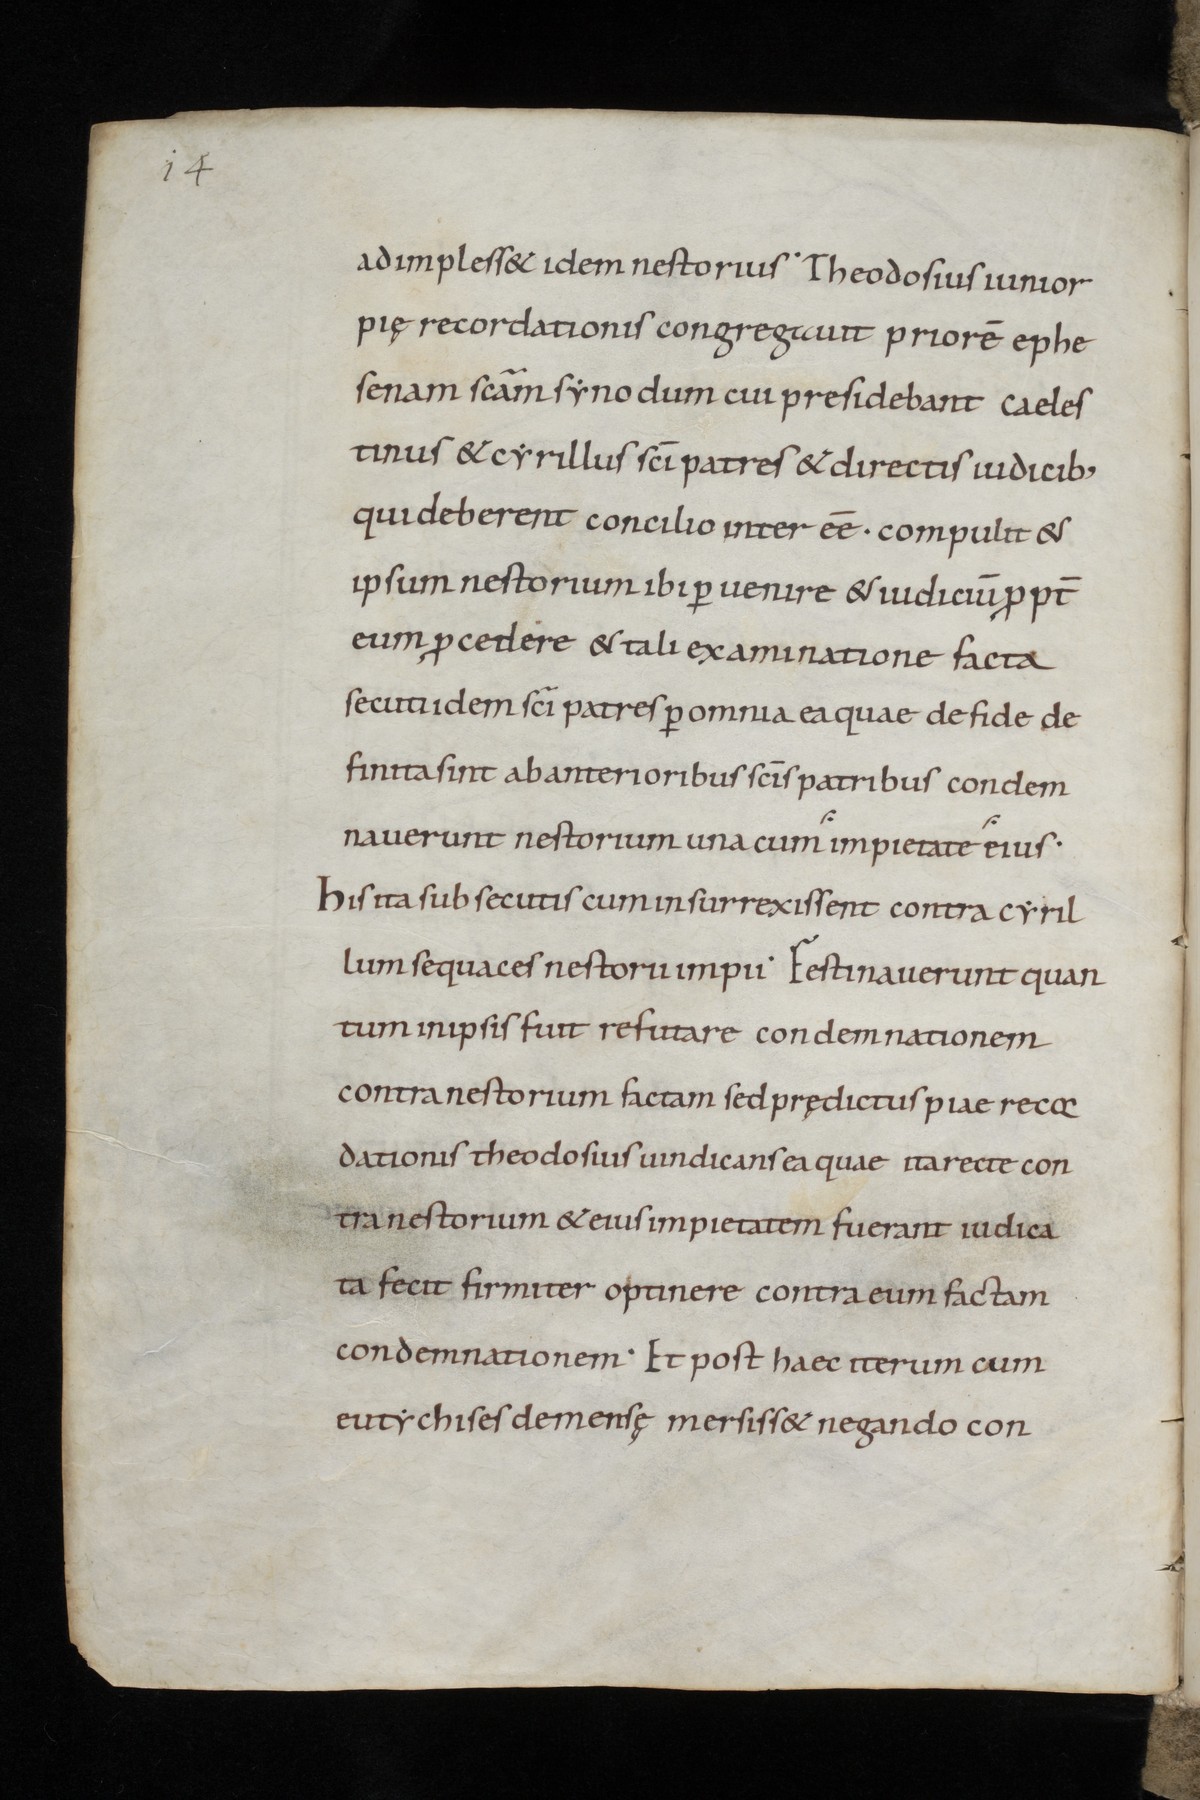 14
adimpless& idem nestorius· Theodosius iunior
pię recordationis congregauit priorē ephe
senam scām sẏnodum cui presidebant caeles
tinus & cẏrillus scī patres & directis iudicib;
qui deberent concilio inter eē· compulit &
ipsum nestorium ibi ꝑuenire & iudiciū ꝓpt̄
eum ꝓcedere & tali examinatione facta
secuti idem scī patres ꝑ omnia ea quae de fide de
finita sint ab anterioribus scīs patribus condem
nauerunt nestorium una cum impietate eius·
his ita subsecutis cum insurrexissent contra cẏril
lum sequaces nestorii impii· Festinauerunt quan
tum in ipsis fuit refutare condemnationem
contra nestorium factam sed prędictus piae recor
dationis theodosius uindicans ea quae ita recte con
tra nestorium & eius impietatem fuerant iudica
ta fecit firmiter optinere contra eum factam
condemnationem· Et post haec iterum cum
eutẏchises demensę mersiss& negando con